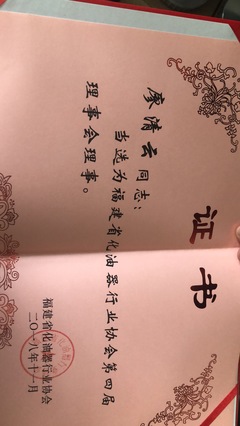 证书
廖清云同志：
当选为福建省化油器行业协会第四届
理事会理事。
福建省化油器行业协会
二〇一八年十一月